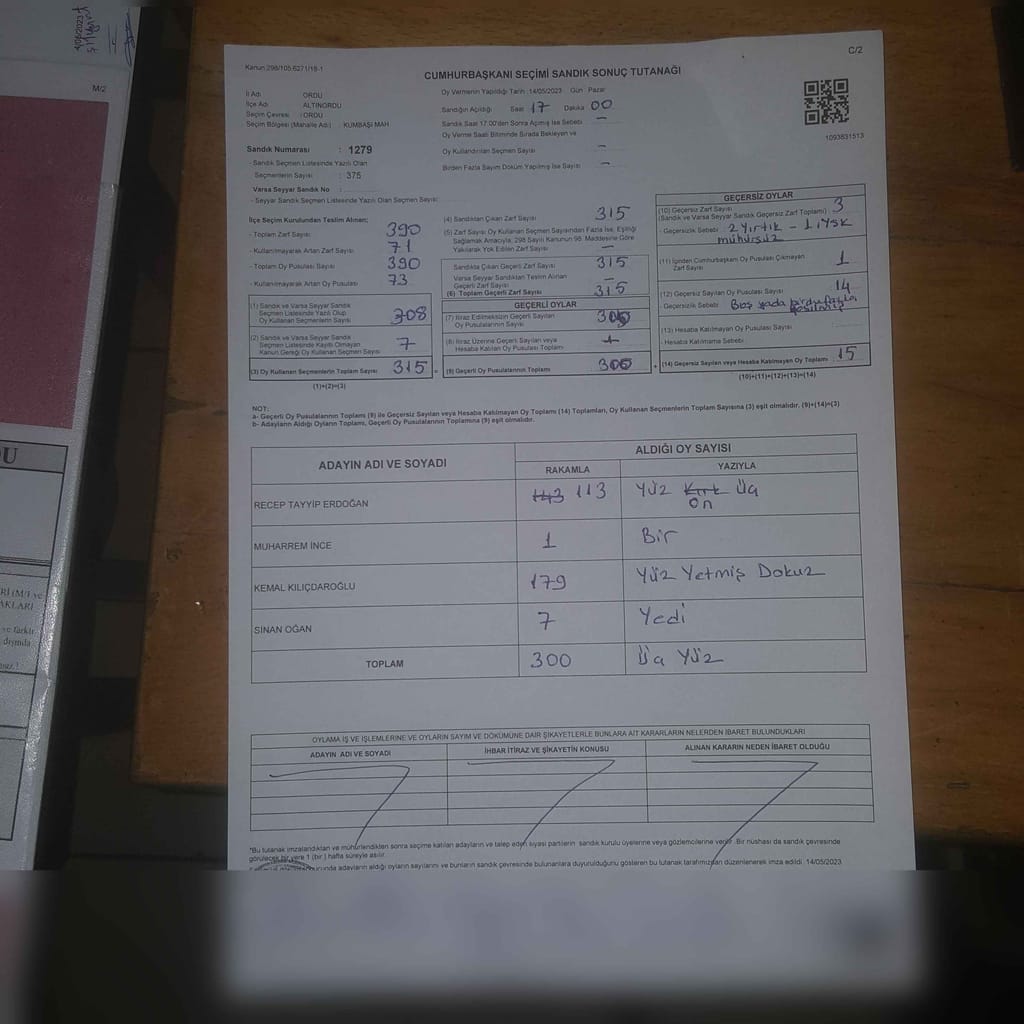 C/2
Kanun:298/105 6271/18-1
CUMHURBAŞKANI SEÇİMİ SANDIK SONUÇ TUTANAĞI
İl Adı ORDU
İlçe Adı ALTINORDU
Seçim Çevresi : ORDU
Seçim Bölgesi (Mahalle Adı) : KUMBAŞI MAH
Oy Vermenin Yapıldığı Tarih :14/05/2023 Gün Pazar
Sandığın Açıldığı Saat 17 Dakika 00
Sandık Saat 17:00'den Sonra Açılmış İse Sebebi —
Oy Verme Saati Bitiminde Sırada Bekleyen ve
Oy Kullandırılan Seçmen Sayısı —
Birden Fazla Sayım Döküm Yapılmış İse Sayısı —
1093831513
Sandık Numarası : 1279
- Sandık Seçmen Listesinde Yazılı Olan
Seçmenlerin Sayısı : 375
Varsa Seyyar Sandık No :
- Seyyar Sandık Seçmen Listesinde Yazılı Olan Seçmen Sayısı
İlçe Seçim Kurulundan Teslim Alınan;
- Toplam Zarf Sayısı 390
- Kullanılmayarak Artan Zarf Sayısı 71
- Toplam Oy Pusulası Sayısı 390
- Kullanılmayarak Artan Oy Pusulası 73
(1) Sandık ve Varsa Seyyar Sandık
Seçmen Listesinde Yazılı Olup
Oy Kullanan Seçmenlerin Sayısı 308
(2) Sandık ve Varsa Seyyar Sandık
Seçmen Listesinde Kayıtlı Olmayan
Kanun Gereği Oy Kullanan Seçmen Sayısı 7
(3) Oy Kullanan Seçmenlerin Toplam Sayısı 315
(1)+(2)=(3)
(4) Sandıktan Çıkan Zarf Sayısı 315
(5) Zarf Sayısı Oy Kullanan Seçmen Sayısından Fazla İse, Eşitliği
Sağlamak Amacıyla, 298 Sayılı Kanunun 98. Maddesine Göre
Yakılarak Yok Edilen Zarf Sayısı —
Sandıkta Çıkan Geçerli Zarf Sayısı 315
Varsa Seyyar Sandıktan Teslim Alınan
Geçerli Zarf Sayısı —
(6) Toplam Geçerli Zarf Sayısı 315
GEÇERLİ OYLAR
(7) İtiraz Edilmeksizin Geçerli Sayılan
Oy Pusulalarının Sayısı 300
(8) İtiraz Üzerine Geçerli Sayılan veya
Hesaba Katılan Oy Pusulası Toplamı
(9) Geçerli Oy Pusulalarının Toplamı 300
GEÇERSİZ OYLAR
(10) Geçersiz Zarf Sayısı
(Sandık ve Varsa Seyyar Sandık Geçersiz Zarf Toplamı) 3
- Geçersizlik Sebebi 2 Yırtık - 1 Ysk
mühürsüz
(11) İçinden Cumhurbaşkanı Oy Pusulası Çıkmayan
Zarf Sayısı 1
(12) Geçersiz Sayılan Oy Pusulası Sayısı 14
Geçersizlik Sebebi Boş yada birden fazla
(13) Hesaba Katılmayan Oy Pusulası Sayısı
- Hesaba Katılmama Sebebi
(14) Geçersiz Sayılan veya Hesaba Katılmayan Oy Toplamı 15
(10)+(11)+(12)+(13)=(14)
NOT:
a- Geçerli Oy Pusulalarının Toplamı (9) ile Geçersiz Sayılan veya Hesaba Katılmayan Oy Toplamı (14) Toplamları, Oy Kullanan Seçmenlerin Toplam Sayısına (3) eşit olmalıdır. (9)+(14)=(3)
b- Adayların Aldığı Oyların Toplamı, Geçerli Oy Pusulalarının Toplamına (9) eşit olmalıdır.
ADAYIN ADI VE SOYADI ALDIĞI OY SAYISI
RAKAMLA YAZIYLA
RECEP TAYYİP ERDOĞAN 143 113 Yüz Kırk Üç
On
MUHARREM İNCE 1 Bir
KEMAL KILIÇDAROĞLU 179 Yüz Yetmiş Dokuz
SİNAN OĞAN 7 Yedi
TOPLAM 300 Üç Yüz
OYLAMA İŞ VE İŞLEMLERİNE VE OYLARIN SAYIM VE DÖKÜMÜNE DAİR ŞİKAYETLERLE BUNLARA AİT KARARLARIN NELERDEN İBARET BULUNDUKLARI
ADAYIN ADI VE SOYADI İHBAR İTİRAZ VE ŞİKAYETİN KONUSU ALINAN KARARIN NEDEN İBARET OLDUĞU
*Bu tutanak imzalandıktan ve mühürlendikten sonra seçime katılan adayların ve talep eden siyasi partilerin sandık kurulu üyelerine veya gözlemcilerine verilir. Bir nüshası da sandık çevresinde
görülecek bir yere 1 (bir) hafta süreyle asılır.
adayların aldığı oyların sayılarını ve bunların sandık çevresinde bulunanlara duyurulduğunu gösteren bu tutanak tarafımızdan düzenlenerek imza edildi. 14/05/2023
M/2